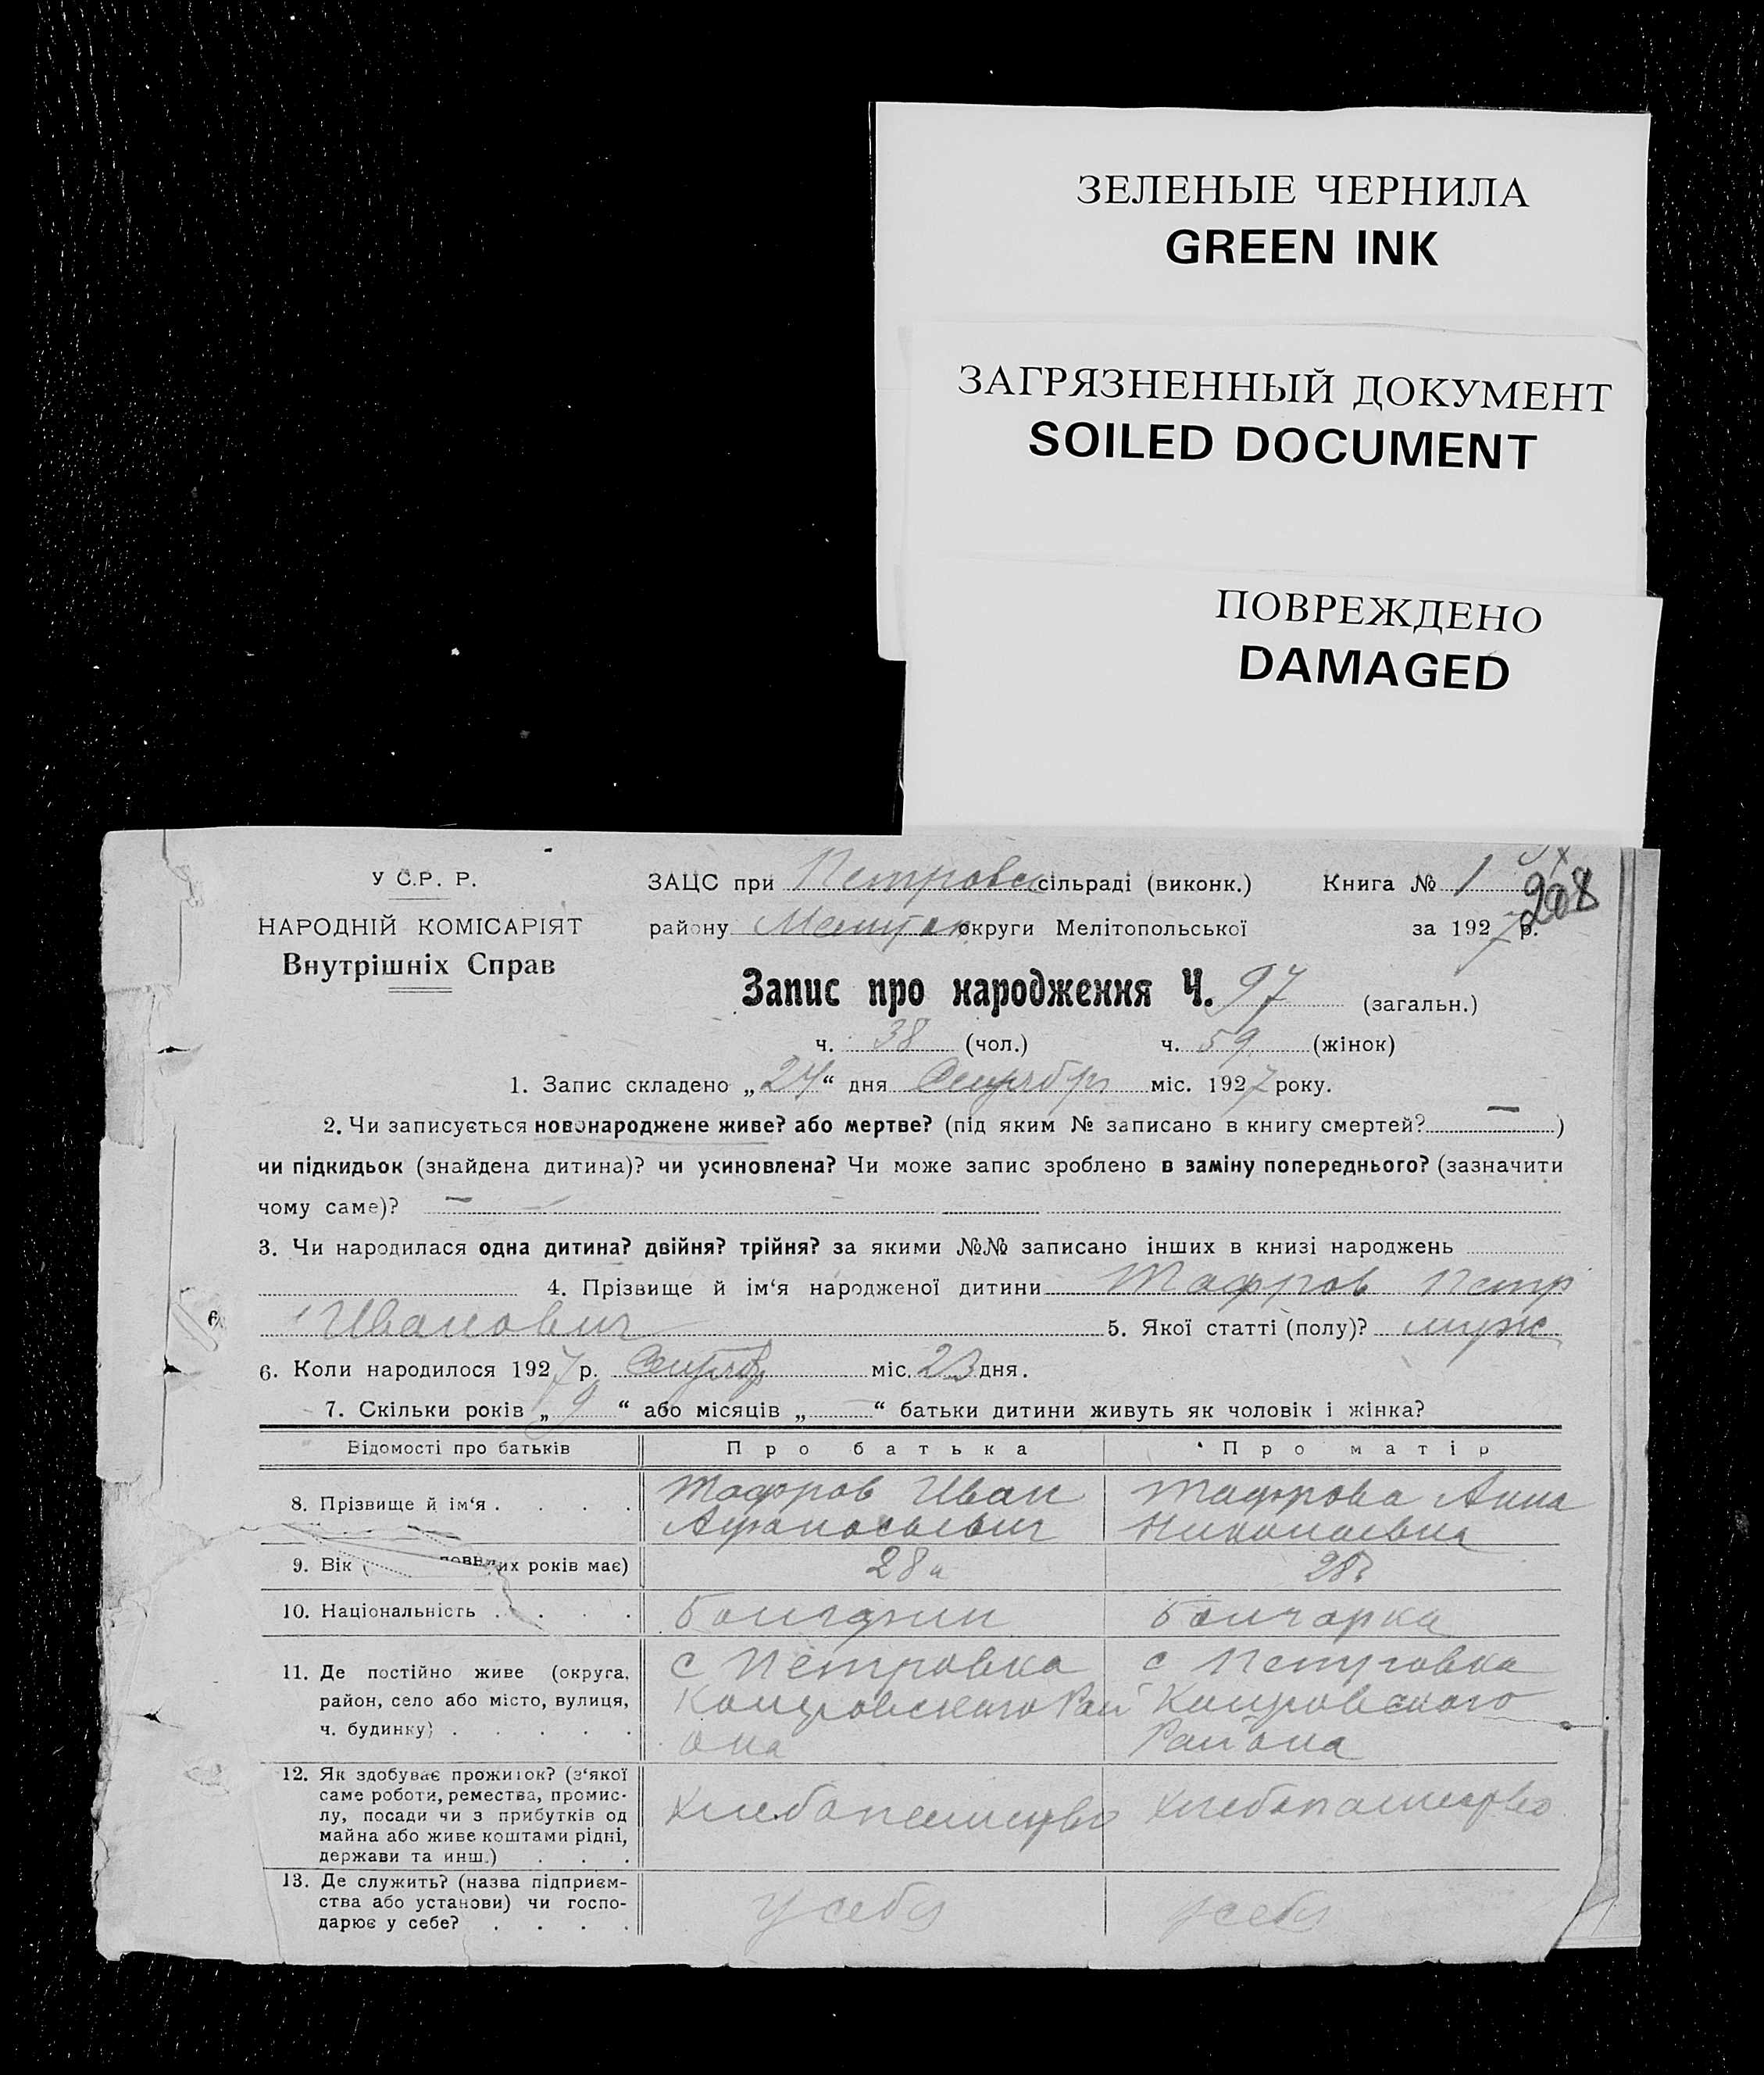 ЗЕЛЕНЫЕ ЧЕРНИЛА
GREEN INK
ЗАГРЯЗНЕННЫЙ ДОКУМЕНТ
SOILED DOCUMENT
ПОВРЕЖДЕНО
DAMAGED
У С.Р. Р.
НАРОДНІЙ КОМІСАРІЯТ
Внутрішніх Справ
ЗАЦС при Петровск сільраді (виконк.) Книга № 1
208
району округи Мелітопольської за 1927 р.
Запис про народження Ч. 97 (загальн.)
ч. 38 (чол.) ч. 59 (жінок)
1. Запис складено „24“ дня Сентября міс. 1927 року.
2. Чи записується новонароджене живе? або мертве? (під яким № записано в книгу смертей? — )
чи підкидьок (знайдена дитина)? чи усиновлена? Чи може запис зроблено в заміну попереднього? (зазначити
чому саме)? —
3. Чи народилася одна дитина? двійня? трійня? за якими №№ записано інших в книзі народжень
4. Прізвище й ім‘я народженої дитини Тафров Петр
Иванович 5. Якої статті (полу)? муж
6. Коли народилося 1927 р. Сентябр міс. 23 дня.
7. Скільки років „9“ або місяців „—“ батьки дитини живуть як чоловік і жінка?
Відомості про батьків Про батька Про матір
8. Прізвище й ім‘я . . . . Тафров Иван Тафрова Анна
Афанасьевич Николаевна
9. Вік ( повних років має) 28 28
10. Національність . . . . Болгарин Болгарка
11. Де постійно живе (округа, с Петровка с Петровка
район, село або місто, вулиця, Коларовского Рай Коларовского
ч. будинку) . . . . . она Района
12. Як здобуває прожиток? (з‘якої
саме роботи, ремества, промис-
лу, посади чи з прибутків од Хлебопашество Хлебопашество
майна або живе коштами рідні,
держави та инш.) . . .
13. Де служить? (назва підприєм-
ства або установи) чи госпо- у себя у себя
дарює у себе? . . . .